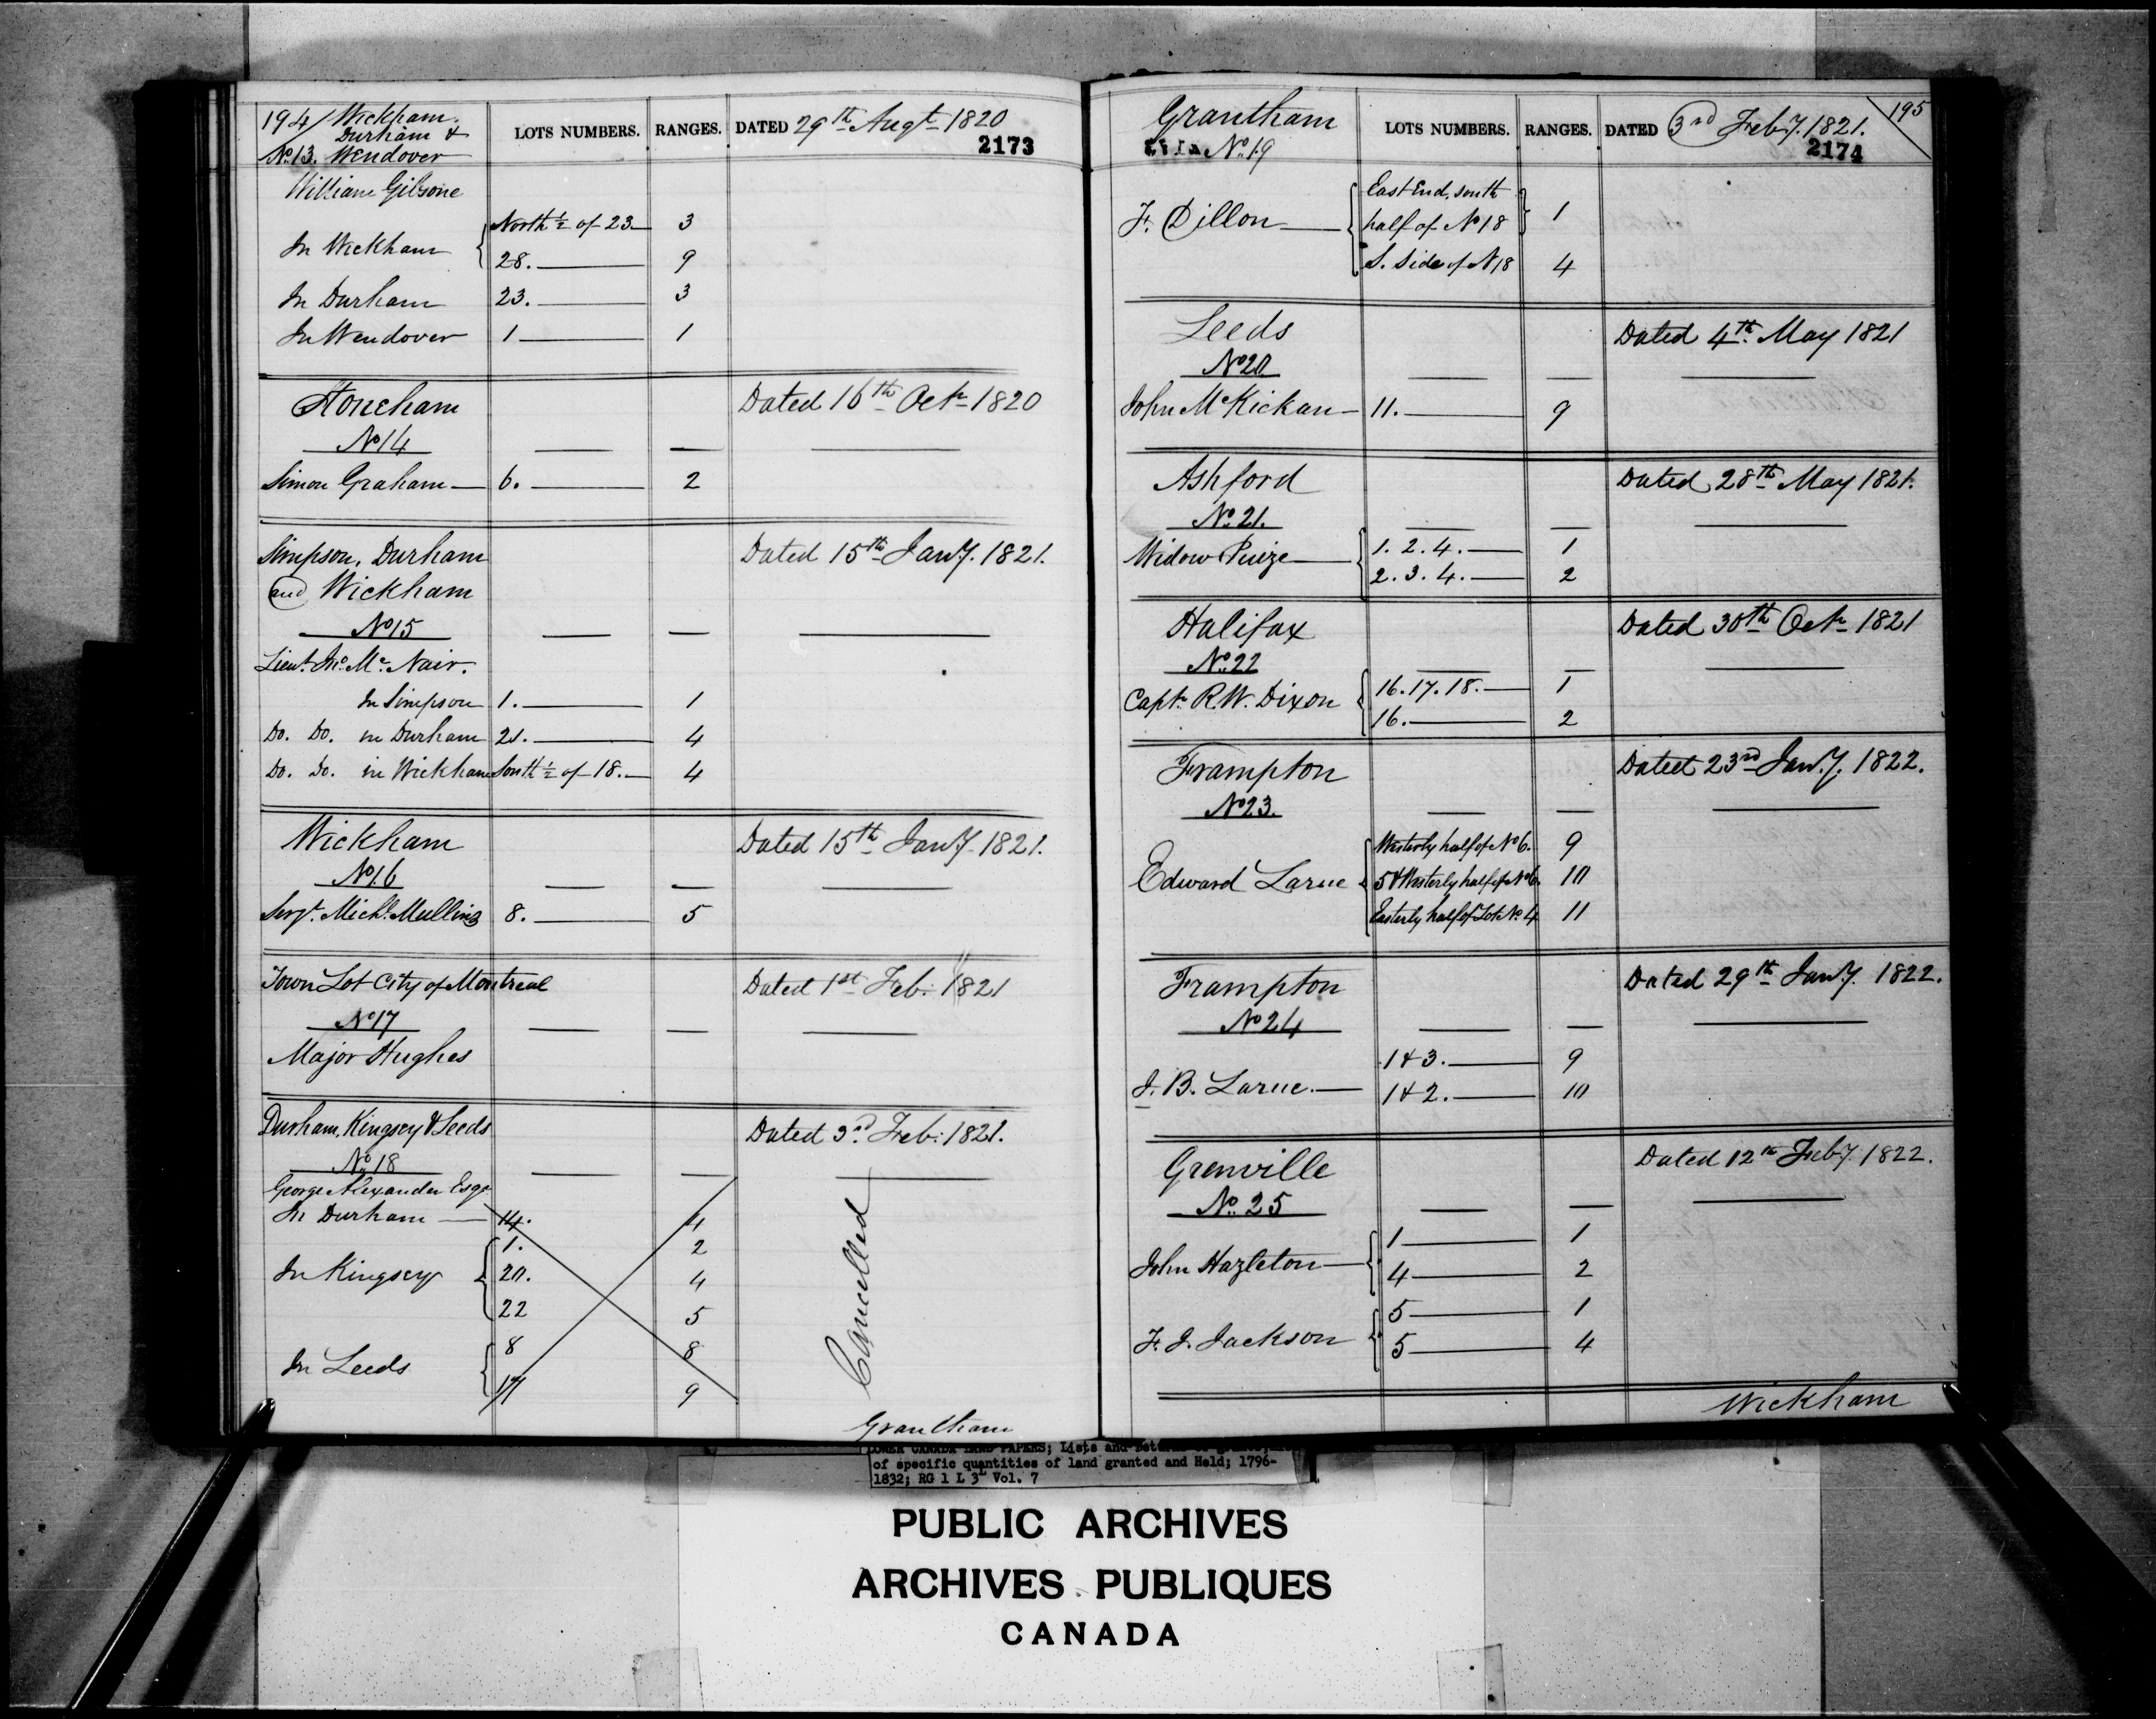 194 / Wickham.
Durham &
No. 13. Wendover LOTS NUMBERS. RANGES. DATED 29th Augt 1820
2173
William Gibsone
In Wickham North ½ of 23 3
28. 9
In Durham 23. 3
In Wendover 1 1
Stoneham Dated 16th Octr 1820
No 14
Simon Graham 6. 2
Simpson, Durham Dated 15th Jany. 1821.
and Wickham
No 15
Lieut. Jno. Mc. Nair.
In Simpson 1. 1
Do. Do. in Durham 21. 4
Do. Do. in Wickham South ½ of 18. 4
Wickham Dated 15th Jany 1821.
No 16
Sergt. Michl. Mullins 8. 5
Town Lot City of Montreal Dated 1st Feb: 1821
No 17
Major Hughes
Durham, Kingsey & Leeds Dated 3rd Feb: 1821.
No 18
George Alexander Esqr
In Durham 14. 4
In Kingsey 1. 2
20. 4
22 5
In Leeds 8 8
17 9
Cancelled
Grantham
Grantham LOTS NUMBERS. RANGES. DATED 3rd Feby. 1821. 195
No. 19 2174
F. Dillon East End, south
half of No 18 1
S. Side of N 18 4
Leeds Dated 4th. May 1821
No 20
John McKickan 11. 9
Ashford Dated 28th May 1821.
No. 21.
Widow 1. 2. 4. 1
2. 3. 4. 2
Halifax Dated 30th Octr 1821
No. 22
Captn R.W. Dixon 16. 17. 18. 1
16. 2
Frampton Dated 23rd Jany. 1822.
No 23.
Edward Larue Westerly half of No 6. 9
5 & Westerly half of No 6. 10
Easterly half of Lot No 4 11
Frampton Dated 29th Jany. 1822.
No 24
J. B. Larue. 1 & 3. 9
1 & 2. 10
Grenville Dated 12th Feby 1822.
No. 25
John Hazleton 1 1
4 2
F. J. Jackson 5 1
5 4
Wickham
LOWER CANADA LAND PAPERS; Lists and
of specific quantities of land granted and Held; 1796-
1832; RG 1 L 3L Vol. 7
PUBLIC ARCHIVES
ARCHIVES PUBLIQUES
CANADA